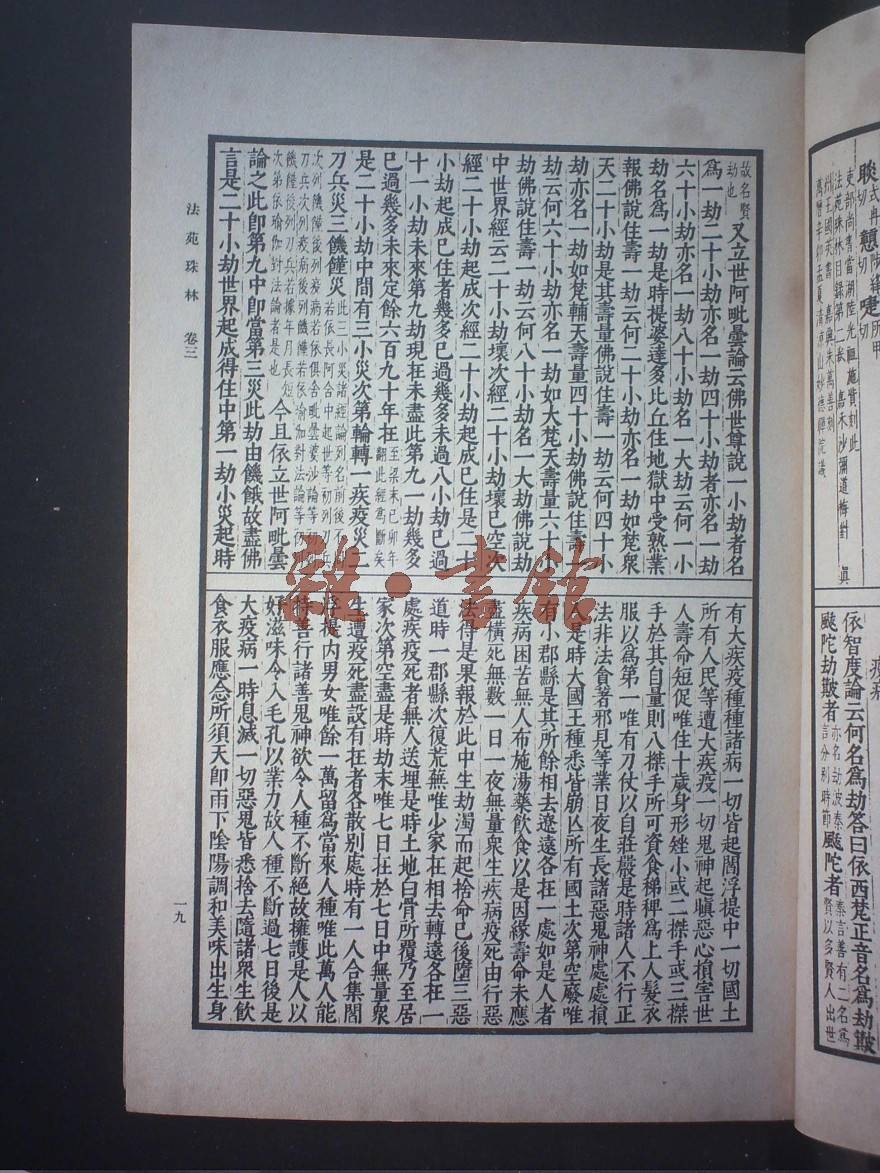 瘦病
依智度論云何名爲劫答曰依西梵正音名爲劫簸
颰陀劫簸者亦名劫波秦言分別時節颰陀者秦言善有二名爲賢以多賢人出世
聧式冉切
切
所甲切
吏部尚書當湖陸光祖施貲刻此
法苑珠林目録第二卷 嘉禾沙彌道梅對 眞
州王國英書 嘉興朱萬善刻
萬曆辛卯孟夏清涼山妙德禪院識
故名賢劫也又立世阿毗曇論云佛世尊說一小劫者名
爲一劫二十小劫亦名一劫四十小劫者亦名一劫
六十小劫亦名一劫八十小劫名一大劫云何一小
劫名爲一劫是時提婆達多比丘住地獄中受熟業
報佛說住壽一劫云何二十小劫亦名一劫如梵衆
天二十小劫是其壽量佛說住壽一劫云何四十小
劫亦名一劫如梵輔天壽量四十小劫佛說住壽一
劫云何六十小劫亦名一劫如大梵天壽量六十小
劫佛說住壽一劫云何八十小劫名一大劫佛說劫
中世界經云二十小劫壞次經二十小劫壞已空次
經二十小劫起成次經二十小劫起成已住是二十
小劫起成已住者幾多已過幾多未過八小劫已過
十一小劫未來第九劫現在未盡此第九一劫幾多
已過幾多未來定餘六百九十年在至梁末己卯年翻此經爲斷矣
是二十小劫中間有三小災次第輪轉一疾疫災二
刀兵災三饑饉災此三小災諸經論列名前後不同若依長阿含中起世等初列刀兵
次列饑饉後列疫病若依俱舍毗曇婆沙論等初列
刀兵次列疾病後列饑饉若依瑜伽對法論等初列
饑饉後列刀兵若據年月長短
次第依瑜伽對法論者是也今且依立世阿毗曇
論之此即第九中即當第三災此劫由饑餓故盡佛
言是二十小劫世界起成得住中第一劫小災起時
有大疾疫種種諸病一切皆起閻浮提中一切國土
所有人民等遭大疾疫一切鬼神起瞋惡心損害世
人壽命短促唯住十歲身形矬小或二搩手或三搩
手於其自量則八搩手所可資食稊稗爲上人髮衣
服以爲第一唯有刀仗以自莊嚴是時諸人不行正
法非法食著邪見等業日夜生長諸惡鬼神處處損
人是時大國王種悉皆崩亾所有國土次第空廢唯
有小郡縣是其所餘相去遼遠各在一處如是人者
疾病困苦無人布施湯藥飲食以是因緣壽命未應
盡橫死無數一日一夜無量衆生疾病疫死由行惡
法得是果報於此中生劫濁而起捨命已後墮三惡
道時一郡縣次復荒蕪唯少家在相去轉遠各在一
處疾疫死者無人送埋是時土地白骨所覆乃至居
家次第空盡是時劫末唯七日在於七日中無量衆
生遭疫死盡設有在者各散別處時有一人合集閻
浮提內男女唯餘一萬留爲當來人種唯此萬人能
持善行諸善鬼神欲令人種不斷絕故擁護是人以
好滋味令入毛孔以業力故人種不斷過七日後是
大疫病一時息滅一切惡鬼皆悉捨去隨諸衆生飲
食衣服應念所須天即雨下陰陽調和美味出生身
法苑珠林 卷三
一九
雜·書館